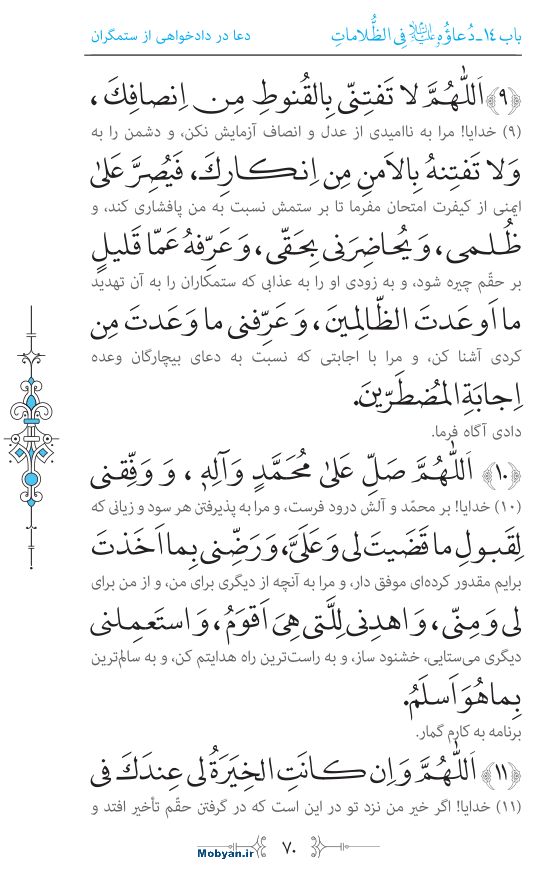 باب ۱۴ـ دُعاؤُه علیه‌السلام فِی الظُّلاماتِ
دعا در دادخواهی از ستمگران
﴿۹﴾ اَللّٰهُمَّ لا تَفتِنّی بِالقُنوطِ مِن اِنصافِكَ،
(۹) خدایا! مرا به ناامیدی از عدل و انصاف آزمایش نکن، و دشمن را به
وَلا تَفتِنهُ بِالاَمنِ مِن اِنكارِكَ، فَیُصِرَّ عَلىٰ
ایمنی از کیفرت امتحان مفرما تا بر ستمش نسبت به من پافشاری کند، و
ظُلمی، وَ یُحاضِرَنی بِحَقّی، وَ عَرِّفهُ عَمّا قَلیلٍ
بر حقّم چیره شود، و به زودی او را به عذابی که ستمکاران را به آن تهدید
ما اَوعَدتَ الظّالِمینَ، وَ عَرِّفنی ما وَعَدتَ مِن
کردی آشنا کن، و مرا با اجابتی که نسبت به دعای بیچارگان وعده
اِجابَةِ المُضطَرّینَ.
دادی آگاه فرما.
﴿۱۰﴾ اَللّٰهُمَّ صَلِّ عَلىٰ مُحَمَّدٍ وَ آلِهٖ، وَ وَفِّقنی
(۱۰) خدایا! بر محمّد و آلش درود فرست، و مرا به پذیرفتن هر سود و زیانی که
لِقَبولِ ما قَضَیتَ لی وَ عَلَیَّ، وَ رَضِّنی بِما اَخَذتَ
برایم مقدور کرده‌ای موفق دار، و مرا به آنچه از دیگری برای من، و از من برای
لی وَ مِنّی، وَ اهدِنی لِلَّتی هِیَ اَقوَمُ، وَ استَعمِلنی
دیگری می‌ستایی، خشنود ساز، و به راست‌ترین راه هدایتم کن، و به سالم‌ترین
بِما هُوَ اَسلَمُ.
برنامه به کارم گمار.
﴿۱۱﴾ اَللّٰهُمَّ وَ اِن كانَتِ الخِیَرَةُ لی عِندَكَ فی
(۱۱) خدایا! اگر خیر من نزد تو در این است که در گرفتن حقّم تأخیر افتد و
۷۰
Mobyan.ir